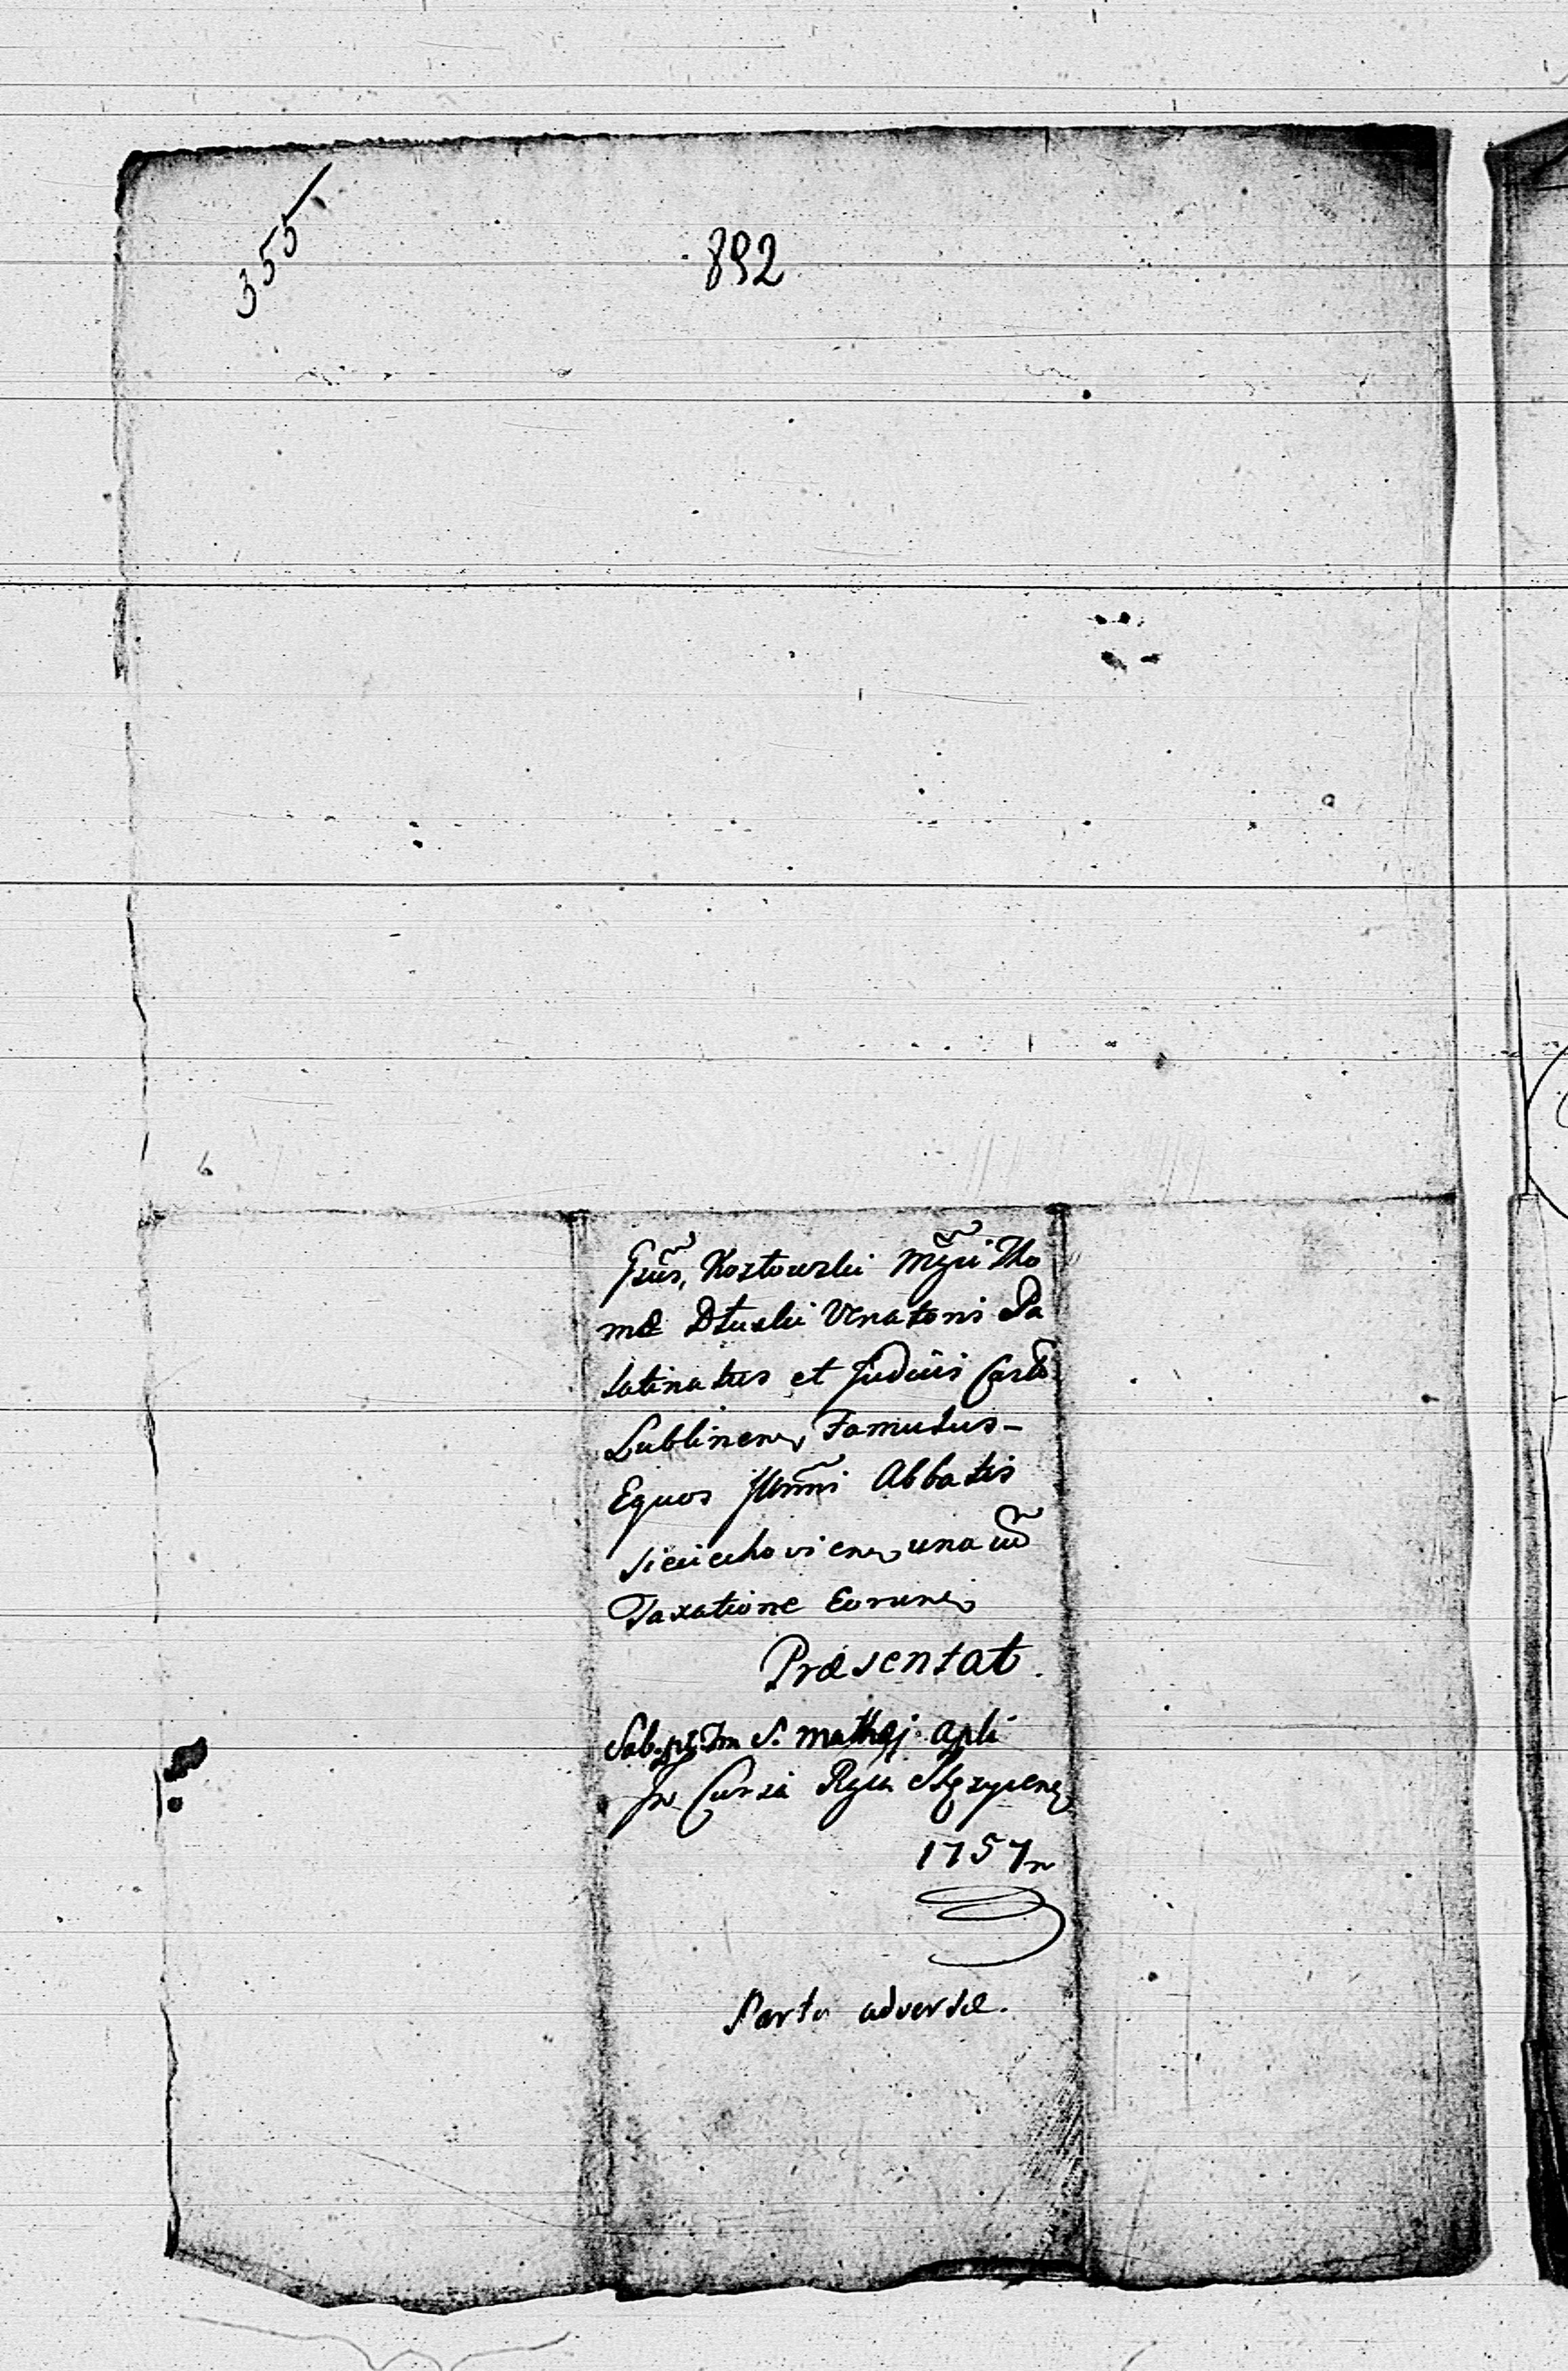 355
892
Gsus, Kozłowski Mgci Tho
mæ Dłuski Venatoris Pa
latinatus et Judicis Castr
Lublinens Famulus –
Equos Illmi Abbatis
Sieciechoviens una cū
Taxatione Eorum
Præsentat.
Sab. pt. Fm S. Mathæj Apli
In Curia Rgia Stęzycens
1757
Parte adversæ.